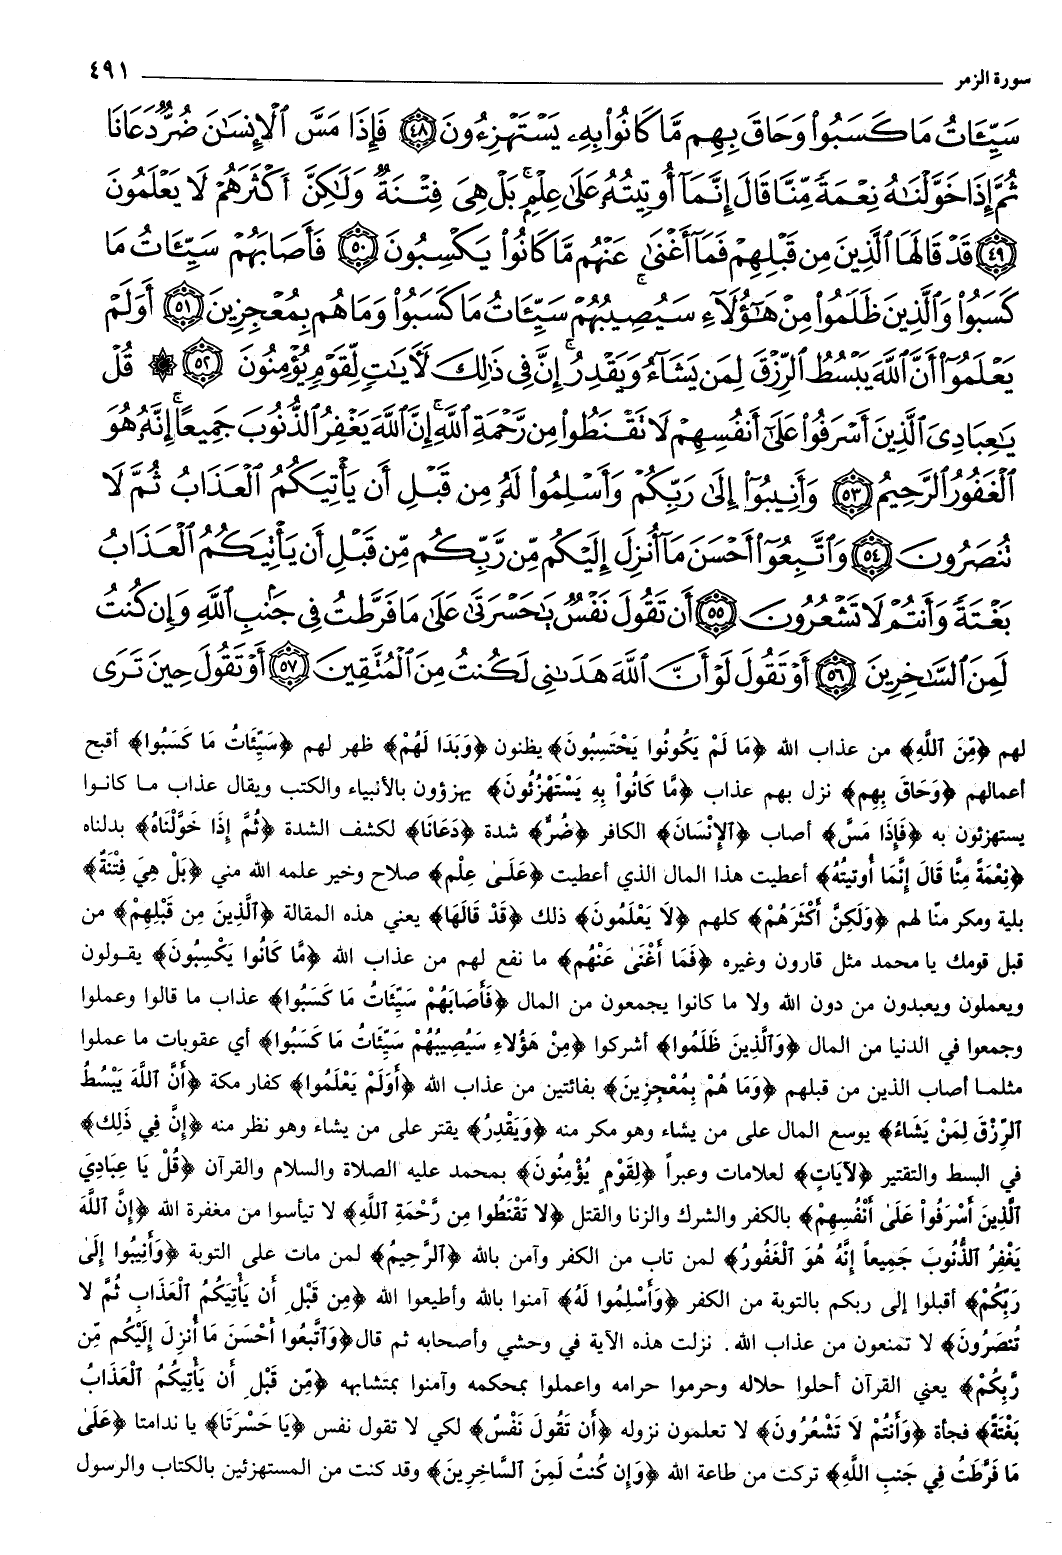 سورة الزمر ٤٩١
سَيِّـَٔاتُ مَا كَسَبُوا۟ وَحَاقَ بِهِم مَّا كَانُوا۟ بِهِۦ يَسْتَهْزِءُونَ ٤٨ فَإِذَا مَسَّ ٱلْإِنسَـٰنَ ضُرٌّ دَعَانَا
ثُمَّ إِذَا خَوَّلْنَـٰهُ نِعْمَةً مِّنَّا قَالَ إِنَّمَآ أُوتِيتُهُۥ عَلَىٰ عِلْمٍۭ ۚ بَلْ هِىَ فِتْنَةٌ وَلَـٰكِنَّ أَكْثَرَهُمْ لَا يَعْلَمُونَ
٤٩ قَدْ قَالَهَا ٱلَّذِينَ مِن قَبْلِهِمْ فَمَآ أَغْنَىٰ عَنْهُم مَّا كَانُوا۟ يَكْسِبُونَ ٥٠ فَأَصَابَهُمْ سَيِّـَٔاتُ مَا
كَسَبُوا۟ ۚ وَٱلَّذِينَ ظَلَمُوا۟ مِنْ هَـٰٓؤُلَآءِ سَيُصِيبُهُمْ سَيِّـَٔاتُ مَا كَسَبُوا۟ وَمَا هُم بِمُعْجِزِينَ ٥١ أَوَلَمْ
يَعْلَمُوٓا۟ أَنَّ ٱللَّهَ يَبْسُطُ ٱلرِّزْقَ لِمَن يَشَآءُ وَيَقْدِرُ ۚ إِنَّ فِى ذَٰلِكَ لَـَٔايَـٰتٍ لِّقَوْمٍ يُؤْمِنُونَ ٥٢ ۞ قُلْ
يَـٰعِبَادِىَ ٱلَّذِينَ أَسْرَفُوا۟ عَلَىٰٓ أَنفُسِهِمْ لَا تَقْنَطُوا۟ مِن رَّحْمَةِ ٱللَّهِ ۚ إِنَّ ٱللَّهَ يَغْفِرُ ٱلذُّنُوبَ جَمِيعًا ۚ إِنَّهُۥ هُوَ
ٱلْغَفُورُ ٱلرَّحِيمُ ٥٣ وَأَنِيبُوٓا۟ إِلَىٰ رَبِّكُمْ وَأَسْلِمُوا۟ لَهُۥ مِن قَبْلِ أَن يَأْتِيَكُمُ ٱلْعَذَابُ ثُمَّ لَا
تُنصَرُونَ ٥٤ وَٱتَّبِعُوٓا۟ أَحْسَنَ مَآ أُنزِلَ إِلَيْكُم مِّن رَّبِّكُم مِّن قَبْلِ أَن يَأْتِيَكُمُ ٱلْعَذَابُ
بَغْتَةً وَأَنتُمْ لَا تَشْعُرُونَ ٥٥ أَن تَقُولَ نَفْسٌ يَـٰحَسْرَتَىٰ عَلَىٰ مَا فَرَّطتُ فِى جَنۢبِ ٱللَّهِ وَإِن كُنتُ
لَمِنَ ٱلسَّـٰخِرِينَ ٥٦ أَوْ تَقُولَ لَوْ أَنَّ ٱللَّهَ هَدَىٰنِى لَكُنتُ مِنَ ٱلْمُتَّقِينَ ٥٧ أَوْ تَقُولَ حِينَ تَرَى
لهم ﴿مِّنَ ٱللَّهِ﴾ من عذاب الله ﴿مَا لَمْ يَكُونُوا يَحْتَسِبُونَ﴾ يظنون ﴿وَبَدَا لَهُمْ﴾ ظهر لهم ﴿سَيِّئَاتُ مَا كَسَبُوا﴾ أقبح
أعمالهم ﴿وَحَاقَ بِهِم﴾ نزل بهم عذاب ﴿مَّا كَانُوا بِهِ يَسْتَهْزِئُونَ﴾ يهزؤون بالأنبياء والكتب ويقال عذاب ما كانوا
يستهزئون به ﴿فَإِذَا مَسَّ﴾ أصاب ﴿ٱلإِنْسَانَ﴾ الكافر ﴿ضُرٌّ﴾ شدة ﴿دَعَانَا﴾ لكشف الشدة ﴿ثُمَّ إِذَا خَوَّلْنَاهُ﴾ بدلناه
﴿نِعْمَةً مِنَّا قَالَ إِنَّمَا أُوتِيتُهُ﴾ أعطيت هذا المال الذي أعطيت ﴿عَلَىٰ عِلْمٍ﴾ صلاح وخير علمه الله مني ﴿بَلْ هِيَ فِتْنَةٌ﴾
بلية ومكر منّا لهم ﴿وَلَكِنَّ أَكْثَرَهُمْ﴾ كلهم ﴿لَا يَعْلَمُونَ﴾ ذلك ﴿قَدْ قَالَهَا﴾ يعني هذه المقالة ﴿ٱلَّذِينَ مِن قَبْلِهِمْ﴾ من
قبل قومك يا محمد مثل قارون وغيره ﴿فَمَا أَغْنَىٰ عَنْهُم﴾ ما نفع لهم من عذاب الله ﴿مَّا كَانُوا يَكْسِبُونَ﴾ يقولون
ويعملون ويعبدون من دون الله ولا ما كانوا يجمعون من المال ﴿فَأَصَابَهُمْ سَيِّئَاتُ مَا كَسَبُوا﴾ عذاب ما قالوا وعملوا
وجمعوا في الدنيا من المال ﴿وَٱلَّذِينَ ظَلَمُوا﴾ أشركوا ﴿مِنْ هَؤُلاءِ سَيُصِيبُهُمْ سَيِّئَاتُ مَا كَسَبُوا﴾ أي عقوبات ما عملوا
مثلما أصاب الذين من قبلهم ﴿وَمَا هُمْ بِمُعْجِزِينَ﴾ بفائتين من عذاب الله ﴿أَوَلَمْ يَعْلَمُوا﴾ كفار مكة ﴿أَنَّ ٱللَّهَ يَبْسُطُ
ٱلرِّزْقَ لِمَنْ يَشَاءُ﴾ يوسع المال على من يشاء وهو مكر منه ﴿وَيَقْدِرُ﴾ يقتر على من يشاء وهو نظر منه ﴿إِنَّ فِي ذَلِكَ﴾
في البسط والتقتير ﴿لآيَاتٍ﴾ لعلامات وعبراً ﴿لِقَوْمٍ يُؤْمِنُونَ﴾ بمحمد عليه الصلاة والسلام والقرآن ﴿قُلْ يَا عِبَادِيَ
ٱلَّذِينَ أَسْرَفُواْ عَلَى أَنْفُسِهِمْ﴾ بالكفر والشرك والزنا والقتل ﴿لا تَقْنَطُوا مِن رَّحْمَةِ ٱللَّهِ﴾ لا تيأسوا من مغفرة الله ﴿إِنَّ ٱللَّهَ
يَغْفِرُ ٱلذُّنُوبَ جَمِيعاً إِنَّهُ هُوَ ٱلْغَفُورُ﴾ لمن تاب من الكفر وآمن بالله ﴿ٱلرَّحِيمُ﴾ لمن مات على التوبة ﴿وَأَنِيبُوا إِلَىٰ
رَبِّكُمْ﴾ أقبلوا إلى ربكم بالتوبة من الكفر ﴿وَأَسْلِمُوا لَهُ﴾ آمنوا بالله وأطيعوا الله ﴿مِن قَبْلِ أَن يَأْتِيَكُمُ ٱلْعَذَابِ ثُمَّ لا
تُنصَرُونَ﴾ لا تمنعون من عذاب الله. نزلت هذه الآية في وحشي وأصحابه ثم قال ﴿وَٱتَّبِعُوا أَحْسَنَ مَا أُنزِلَ إِلَيْكُم مِّن
رَّبِّكُمْ﴾ يعني القرآن أحلوا حلاله وحرموا حرامه واعملوا بمحكمه وآمنوا بمتشابهه ﴿مِّن قَبْلِ أَن يَأْتِيَكُمُ ٱلْعَذَابُ
بَغْتَةً﴾ فجأة ﴿وَأَنتُمْ لَا تَشْعُرُونَ﴾ لا تعلمون نزوله ﴿أَن تَقُولَ نَفْسٌ﴾ لكي لا تقول نفس ﴿يَا حَسْرَتَا﴾ يا ندامتا ﴿عَلَىٰ
مَا فَرَّطَتُ فِي جَنبِ اللَّهِ﴾ تركت من طاعة الله ﴿وَإِن كُنتُ لَمِنَ ٱلسَّاخِرِينَ﴾ وقد كنت من المستهزئين بالكتاب والرسول